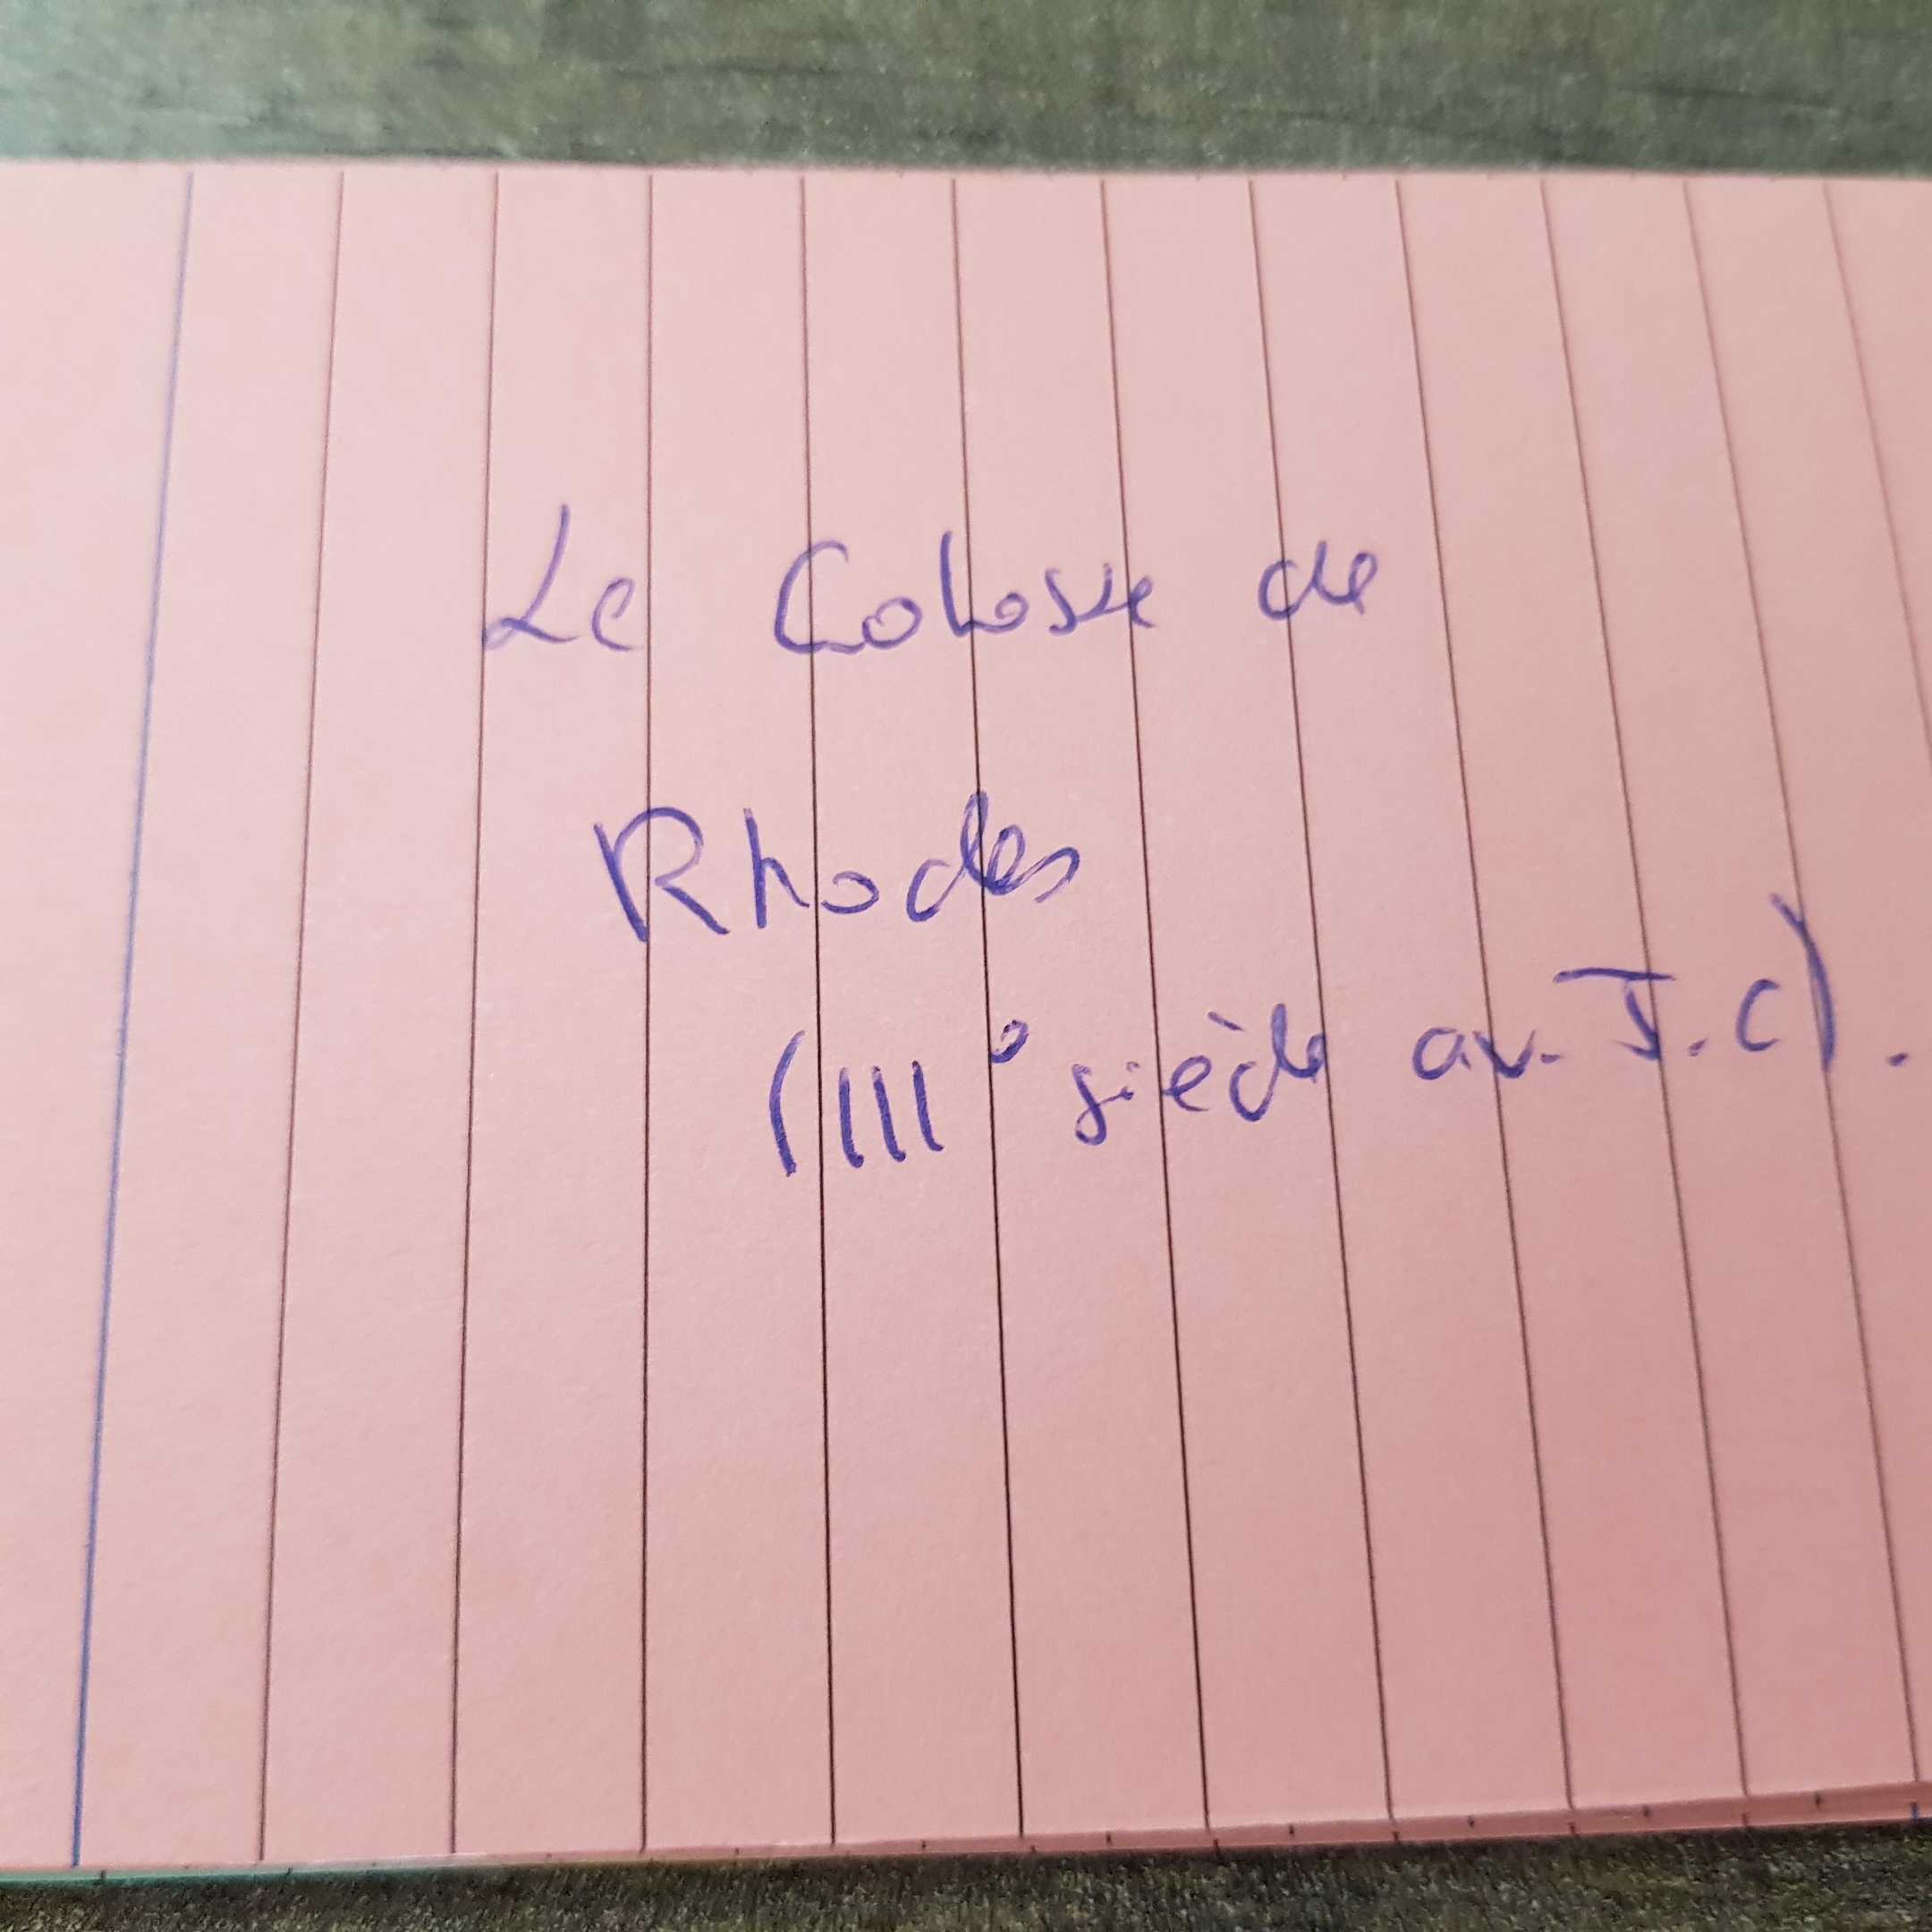 Le Colosse de
Rhodes
(III° siècle av. J.C).